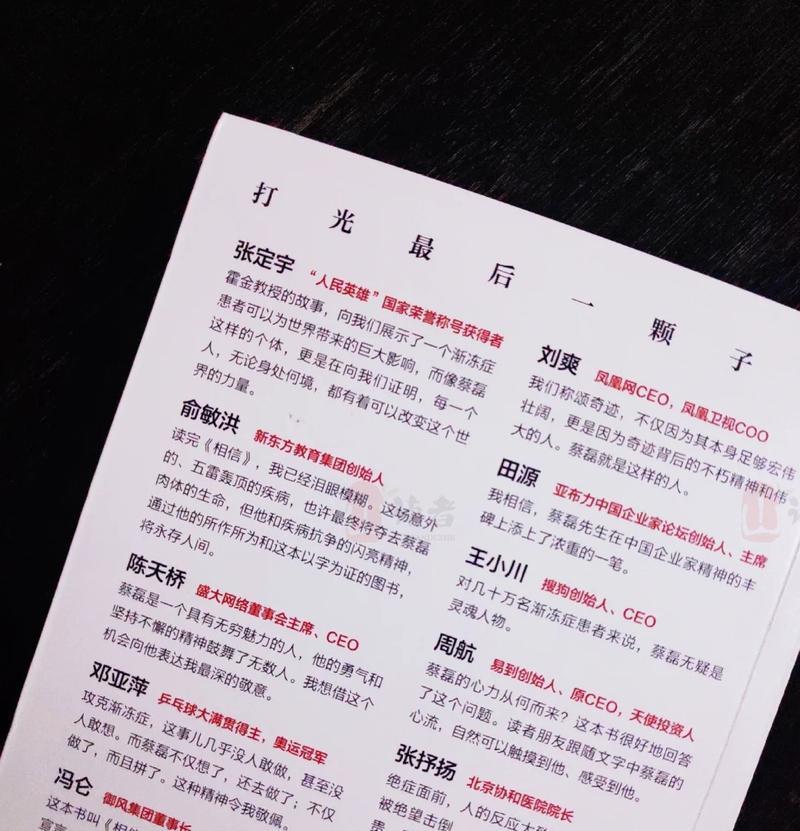 打光最后一颗子
张定宇 “人民英雄”国家荣誉称号获得者
霍金教授的故事，向我们展示了一个渐冻症
患者可以为世界带来的巨大影响，而像蔡磊
这样的个体，更是在向我们证明，每一个
人，无论身处何境，都有着可以改变这个世
界的力量。
俞敏洪 新东方教育集团创始人
读完《相信》，我已经泪眼模糊。这场意外
的、五雷轰顶的疾病，也许最终将夺去蔡磊
肉体的生命，但他和疾病抗争的闪亮精神，
通过他的所作所为和这本以字为证的图书，
将永存人间。
陈天桥 盛大网络董事会主席、CEO
蔡磊是一个具有无穷魅力的人，他的勇气和
坚持不懈的精神鼓舞了无数人。我想借这个
机会向他表达我最深的敬意。
邓亚萍 乒乓球大满贯得主，奥运冠军
攻克渐冻症，这事儿几乎没人敢做，甚至没
人敢想。而蔡磊不仅想了，还去做了；不仅
做了，而且拼了。这种精神令我敬佩。
冯仑 御风集团董事长
这本书叫《相信
刘爽 凤凰网CEO，凤凰卫视COO
我们称颂奇迹，不仅因为其本身足够宏伟
壮阔，更是因为奇迹背后的不朽精神和伟
大的人。蔡磊就是这样的人。
田源 亚布力中国企业家论坛创始人、主席
我相信，蔡磊先生在中国企业家精神的丰
碑上添上了浓重的一笔。
王小川 搜狗创始人、CEO
对几十万名渐冻症患者来说，蔡磊无疑是
灵魂人物。
周航 易到创始人、原CEO，天使投资人
蔡磊的心力从何而来？这本书很好地回答
了这个问题。读者朋友跟随文字中蔡磊的
心流，自然可以触摸到他、感受到他。
张抒扬 北京协和医院院长
绝症面前，人的反应大
被绝望击倒